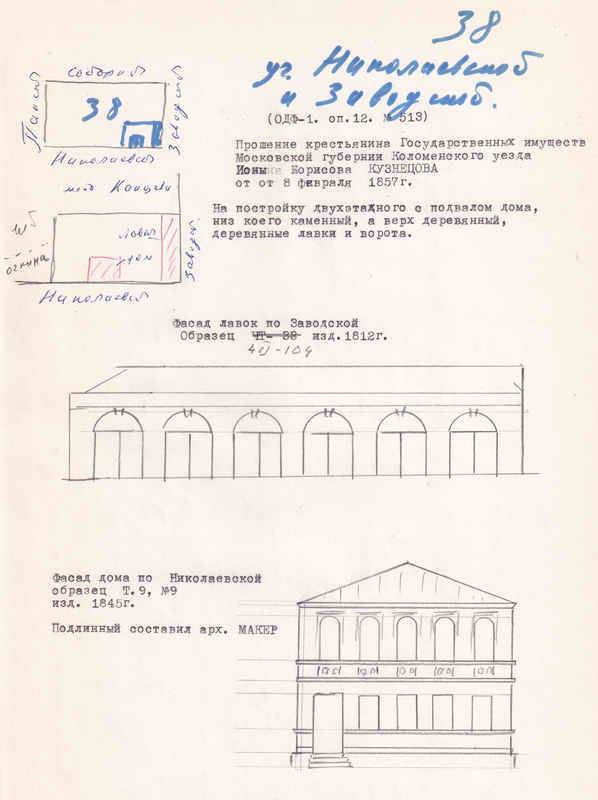 38
уг. Николаевской
и Заводской.
(ОДФ-1. оп.12. № 513)
Соборной
38
Заводской
Николаевской
Прошение крестьянина Государственных имуществ
Московской губернии Коломенского уезда
Ионы Борисова КУЗНЕЦОВА
от от 8 февраля 1857г.
На постройку двухэтадного с подвалом дома,
низ коего каменный, а верх деревянный,
деревянные лавки и ворота.
лавки
дом
Заводск.
Николаевской
Фасад лавок по Заводской
Образец изд.1812г.
Фасад дома по Николаевской
образец Т.9, №9
изд. 1845г.
Подлинный составил арх. МАКЕР